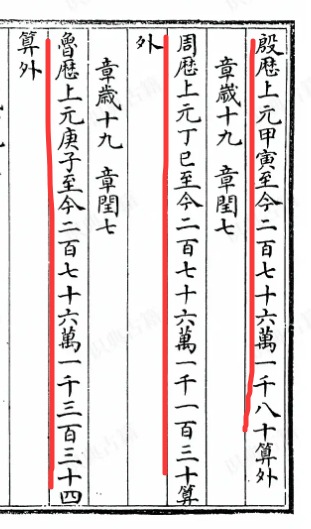 殷歴上元甲寅至今二百七十六萬一千八十算外
章歲十九　章閏七
周歴上元丁巳至今二百七十六萬一千一百三十算
外
章歲十九　章閏七
魯歴上元庚子至今二百七十六萬一千三百三十四
算外